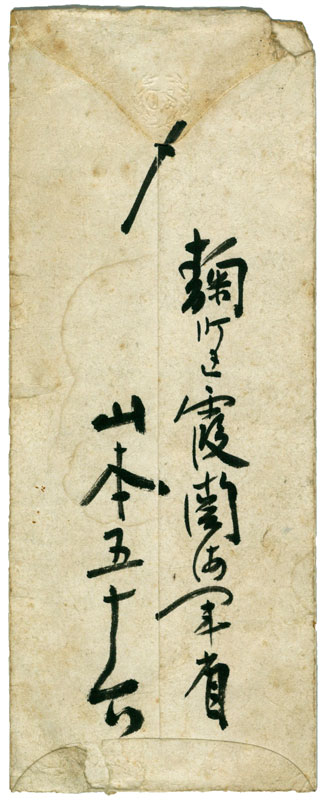 〆
麹町区霞関海軍省
山本五十六